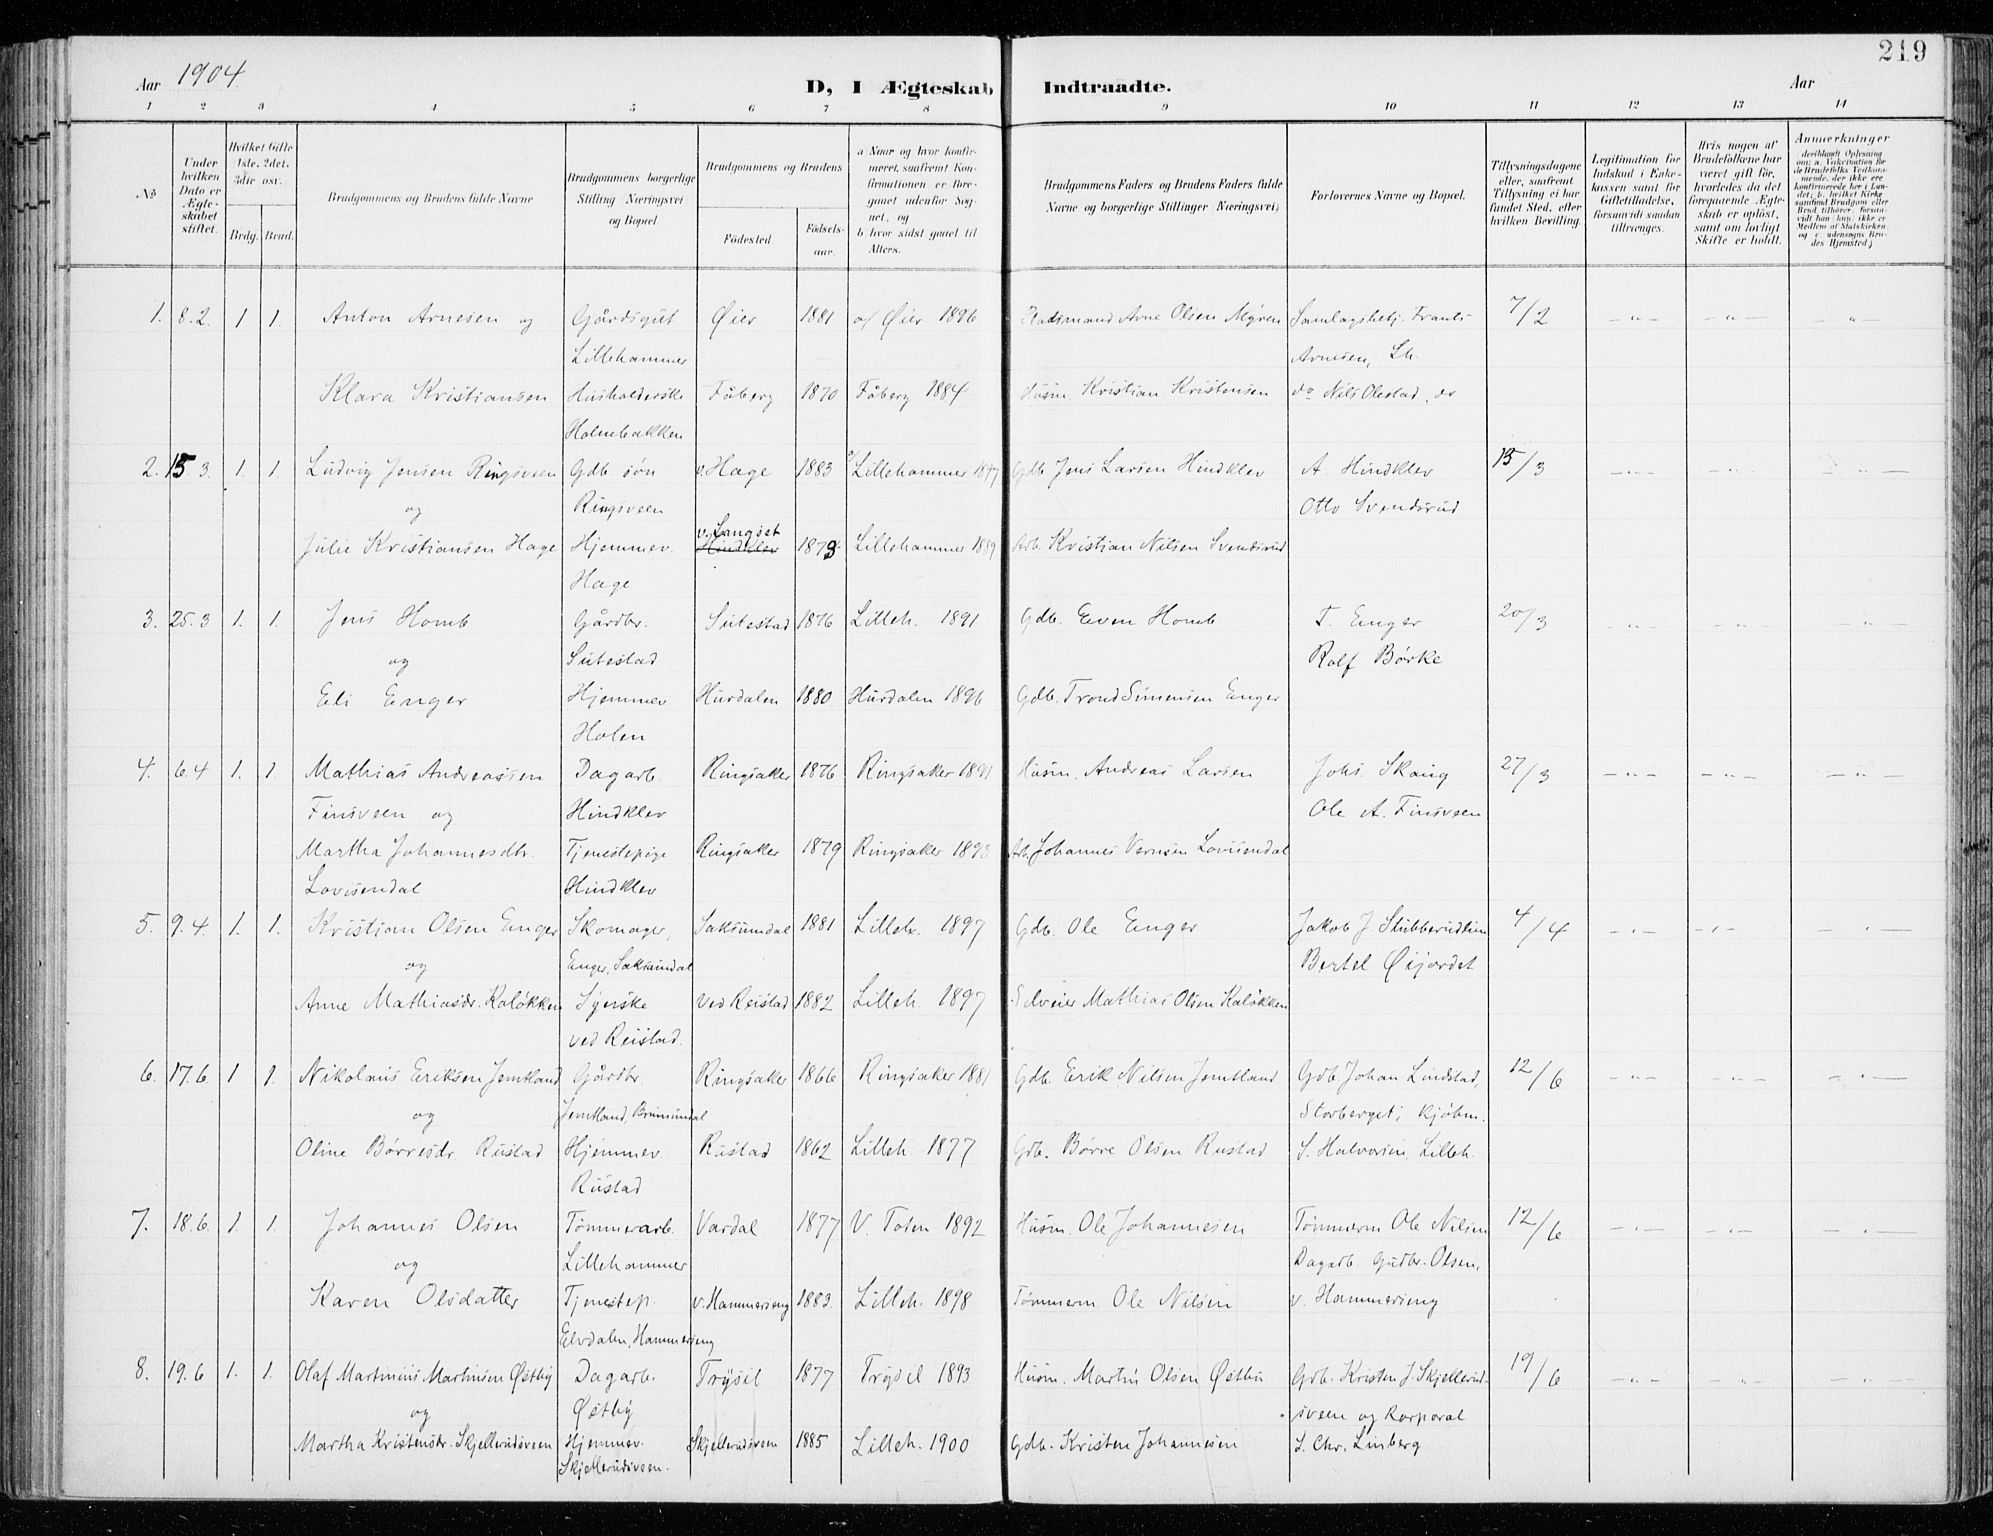 219
Aar 1904 D, I Ægteskab Indtraadte. Aar
1 2 3 4 5 6 7 8 9 10 11 12 13 14
No.
Under hvilken Dato er Ægteskabet stiftet.
Hvilket Gifte 1ste, 2det, 3die osv.
Brdg. Brud.
Brudgommens og Brudens fulde Navne
Brudgommens borgerlige Stilling Næringsvei og Bopæl.
Brudgommens og Brudens
Födested
Födselsaar.
a Naar og hvor konfirmeret, saafremt Konfirmationen er foregaaet udenfor Sognet, og
b hvor sidst gaaet til Alters.
Brudgommens Faders og Brudens Faders fulde Navne og borgerlige Stillinger Næringsvei)
Forlovernes Navne og Bopæl.
Tillysningsdagene eller, saafremt Tillysning ei har fundet Sted, efter hvilken Bevilling.
Legitimation for Indskud i Enkekassen samt for Giftetilladelse, forsaavidt saadan tiltrænges.
Hvis nogen af Brudefolkene har været gift før, hvorledes da det foregaaende Ægteskab er opløst, samt om lovligt Skifte er holdt.
Anmerkninger
1. 8.2. 1 1. Anton Arnesen og Gårdsgut Øier 1881 a/ Øier 1896 Pladsmand Arne Olsen Myren Samlagsbetj. Frants 7/2 -"- -"- -"-
Lillehammer Arnesen, Lh.
Klara Kristiansen Husholderske Fåberg 1870 Fåberg 1884 Husm. Kristian Kristensen do Nils Olestad, do
Holmbakken
2. 15.3. 1. 1. Ludvig Jensen Ringsveen Gdb. søn v. Hage 1883 Lillehammer 1897 Gdb. Jens Larsen Hindklev A. Hindklev 13/3 -"- -"- -"-
og Ringsveen Otto Svendsrud
v. Langset
Julie Kristiansen Hage Hjemmev. Hindklev 1873 Lillehammer 1889 Arb. Kristian Nilsen Svendsrud
Hage
3. 25.3 1. 1. Jens Homb Gårdbr. Sutestad 1876 Lilleh. 1891 Gdb. Even Homb T. Enger 20/3 -"- -"- -"-
og Sutestad Rolf Børke
Eli Enger Hjemmev. Hurdalen 1880. Hurdalen 1896 Gdb. Trond Simensen Enger
Holen
4. 6.4 1. 1. Mathias Andreassen Dagarb. Ringsaker 1876 Ringsaker 1891 Husm. Andreas Larsen Johs. Skaug 27/3 -"- -"- -"-
Finsveen og Hindklev Ole A. Finsveen
Martha Johannesdtr. Tjenestepige Ringsaker 1879 Ringsaker 1893 Arb. Johannes Lovisendal
Lovisendal Hindklev
5. 9.4. 1. 1. Kristian Olsen Enger Skomager, Saksumdal 1881 Lilleh. 1897 Gdb. Ole Enger Jakob J. Stubberudlien 4/4 -"- -"- -"-
og Enger, Saksumdal Bertel Øijordet
Anne Mathiasdr. Kaløkken Syerske ved Reistad 1882 Lilleh. 1897 Selveier Mathias Olsen Kaløkken
ved Reistad.
6. 17.6. 1 1. Nikolaus Eriksen Jemtland Gårdbr. Ringsaker 1866 Ringsaker 1881 Gdb. Erik Nilsen Jemtland Gdb. Johan Lindstad, 12/6 -"- -"- -"-
og Jemtland, Brumundal Storberget, kjøbm.
Oline Børresdr. Rustad Hjemmev. Rustad 1862 Lilleh. 1877 Gdb. Børre Olsen Rustad S. Halvorsen, Lilleh.
Rustad
7. 18.6. 1. 1. Johannes Olsen Tømmerarb. Vardal 1877 V. Toten 1892 Husm. Ole Johannesen Tømmerm Ole Nilsen 12/6 -"- -"- -"-
og Lillehammer Dagarb. Gudbr. Olsen,
Karen Olsdatter Tjenestep. v. Hammerseng 1883. Lilleh. 1898 Tømmerm Ole Nilsen v. Hammerseng
Elvdalen, Hammerseng
8. 19.6 1. 1. Olaf Martinius Martinsen Østby Dagarb. Trysil 1877 Trysil 1893 Husm. Martin Olsen Østby Gdb. Kristen J. Skjellerud- 19/6 -"- -"- -"-
og Østby sveen og Korporal
Martha Kristensdr. Skjellerudsveen Hjemmev. Skjellerudsveen 1885 Lilleh. 1900 Gdb. Kristen Johannesen S. Chr. Linberg
Skjellerudsveen.